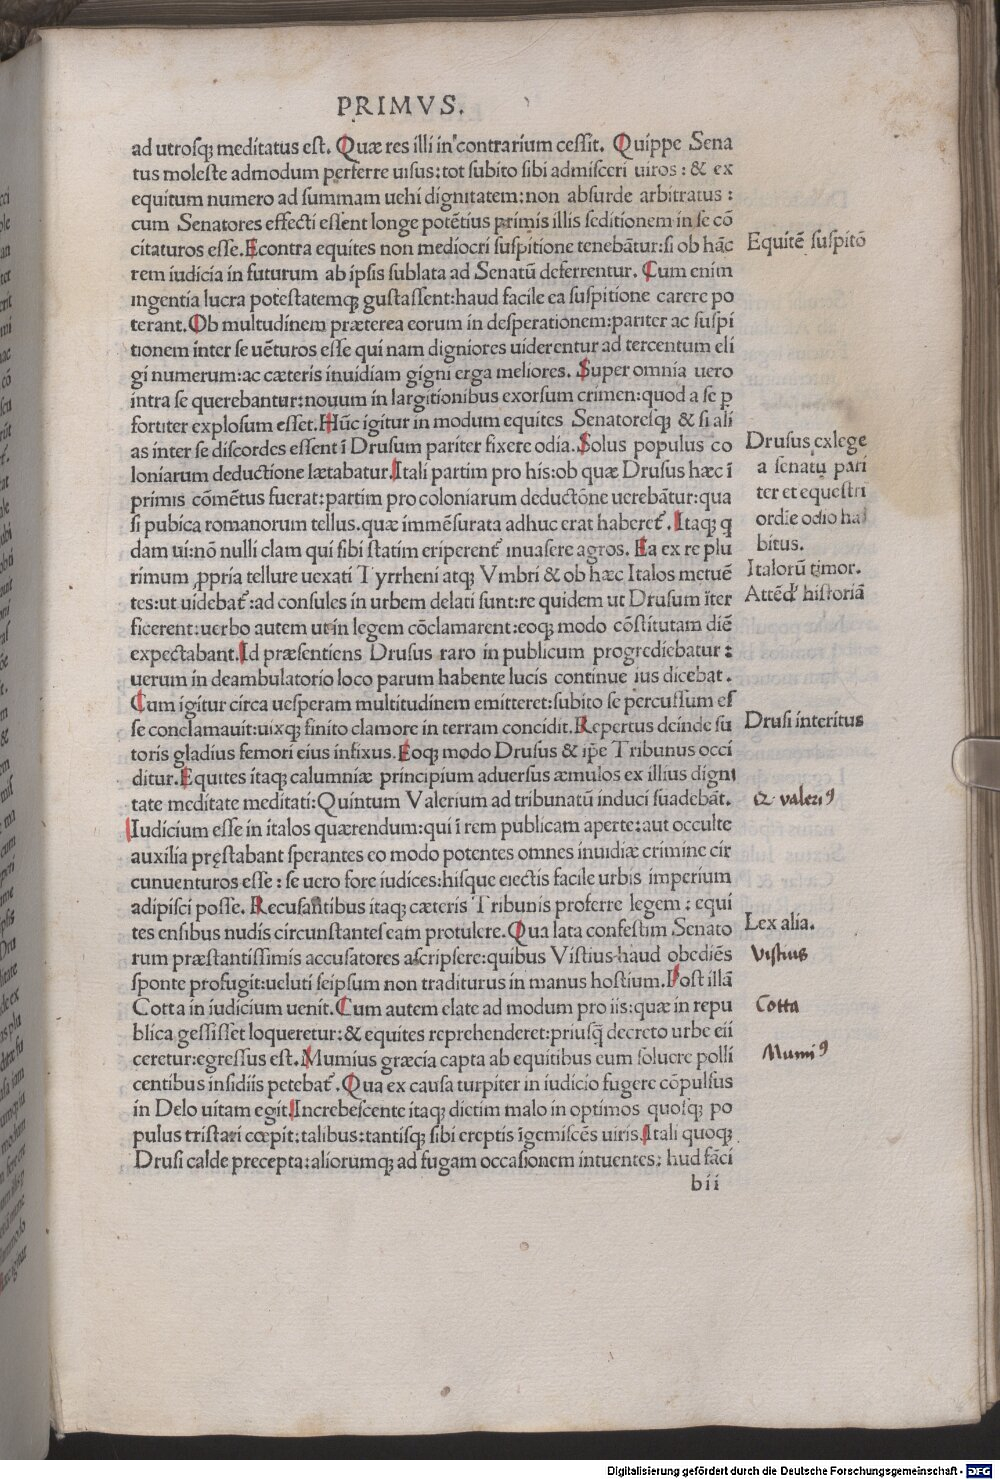 PRIMVS.
ad utroſqꝫ meditatus eſt. Quæ res illi in contrarium ceſſit. Quippe Sena
tus moleſte admodum perferre uiſus: tot ſubito ſibi admiſceri uiros: & ex
equitum numero ad ſummam uehi dignitatem: non abſurde arbitratus:
cum Senatores effecti eſſent longe potētius primis illis ſeditionem in ſe cō
citaturos eſſe. Econtra equites non mediocri ſuſpitione tenebātur: ſi ob hāc
Equitē ſuſpitō
rem iudicia in futurum ab ipſis ſublata ad Senatū deferrentur. Cum enim
ingentia lucra poteſtatemqꝫ guſtaſſent: haud facile ea ſuſpitione carere po
terant. Ob multudinem præterea eorum in deſperationem: pariter ac ſuſpi
tionem inter ſe uēturos eſſe qui nam digniores uiderentur ad tercentum eli
gi numerum: ac cæteris inuidiam gigni erga meliores. Super omnia uero
intra ſe querebantur: nouum in largitionibus exorſum crimen: quod a ſe p
fortiter exploſum eſſet. Hūc igitur in modum equites Senatoreſqꝫ & ſi ali
as inter ſe diſcordes eſſent ī Druſum pariter fixere odia. Solus populus co
Druſus exlege
loniarum deductione lætabatur. Itali partim pro his: ob quæ Druſus hæc ī
a ſenatu pari
primis cōmētus fuerat: partim pro coloniarum deductōne uerebātur: qua
ter et equeſtri
ſi pubica romanorum tellus. quæ immēſurata adhuc erat haberet̄. Itaqꝫ q
ordīe odio ha
dam ui: nō nulli clam qui ſibi ſtatim eriperent̄ inuaſere agros. Ea ex re plu
bitus.
rimum ꝓpria tellure uexati Tyrrheni atqꝫ Vmbri & ob hæc Italos metuē
Italorū timor.
tes: ut uidebat̄: ad conſules in urbem delati ſunt: re quidem ut Druſum īter
Attēd' hiſtoriā
ficerent: uerbo autem ut in legem cōclamarent: eoqꝫ modo cōſtitutam diē
expectabant. Id præſentiens Druſus raro in publicum progrediebatur:
uerum in deambulatorio loco parum habente lucis continue ius dicebat.
Cum igitur circa ueſperam multitudinem emitteret: ſubito ſe percuſſum eſ
ſe conclamauit: uixqꝫ finito clamore in terram concidit. Repertus deinde ſu
Druſi interitus
toris gladius femori eius infixus. Eoqꝫ modo Druſus & ip̄e Tribunus occi
ditur. Equites itaqꝫ calumniæ principium aduerſus æmulos ex illius digni
tate meditate meditati: Quintum Valerium ad tribunatū induci ſuadebāt.
Q. valeriꝰ
Iudicium eſſe in italos quærendum: qui ī rem publicam aperte: aut occulte
auxilia pręſtabant ſperantes eo modo potentes omnes inuidiæ crimine cir
cunuenturos eſſe: ſe uero fore iudices: hiſque eiectis facile urbis imperium
adipiſci poſſe. Recuſantibus itaqꝫ cæteris Tribunis proferre legem: equi
tes enſibus nudis circunſtanteſ eam protulere. Qua lata confeſtim Senato
Lex alia.
rum præſtantiſſimis accuſatores aſcripſere: quibus Viſtius haud obediēs
Viſtius
ſponte profugit: ueluti ſeipſum non traditurus in manus hoſtium. Poſt illā
Cotta in iudicium uenit. Cum autem elate ad modum pro iis: quæ in repu
Cotta
blica geſſiſſet loqueretur: & equites reprehenderet: priuſq̄ decreto urbe eii
ceretur: egreſſus eſt. Mumius græcia capta ab equitibus eum ſoluere polli
Mumiꝰ
centibus inſidiis petebat̄. Qua ex cauſa turpiter in iudicio fugere cōpulſus
in Delo uitam egit. Increbeſcente itaqꝫ dictim malo in optimos quoſqꝫ po
pulus triſtari cœpit: talibus: tantiſqꝫ ſibi ereptis īgemiſcēs uiris. Itali quoqꝫ
Druſi calde precepta: aliorumqꝫ ad fugam occaſionem intuentes: hud fāci
bii
Digitalisierung gefördert durch die Deutsche Forschungsgemeinschaft - DFG